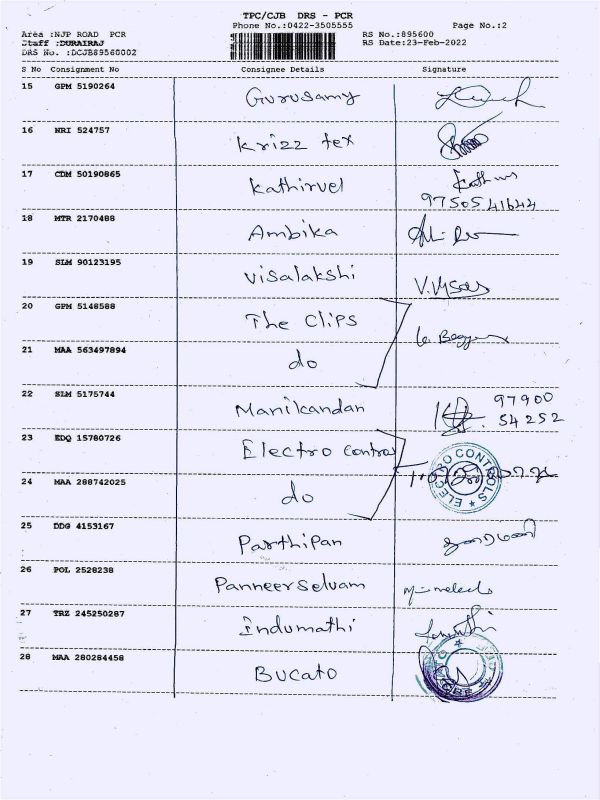 TPC/CJB DRS - PCR
Phone No.:0422-3505555 Page No.:2
Area :NJP ROAD PCR RS No.:895600
Staff :DURAIRAJ RS Date:23-Feb-2022
DRS No. :DCJB89560002
S No Consignment No Consignee Details Signature
15 GPM 5190264 Gurusamy
16 NRI 524757 Krizz tex
17 CDM 50190865 Kathirvel
97505 41644
18 MTR 2170488 Ambika
19 SLM 90123195 Visalakshi
20 GPM 5148588 The Clips
21 MAA 563497894 do
22 SLM 5175744 Manikandan 97900
54252
23 EDQ 15780726 Electro Control
24 MAA 288742025 do
ELECTRO CONTROLS
25 DDG 4153167 Parthipan
26 POL 2528238 Panneer Selvam
27 TRZ 245250287 Indumathi
28 MAA 280284458 Bucato